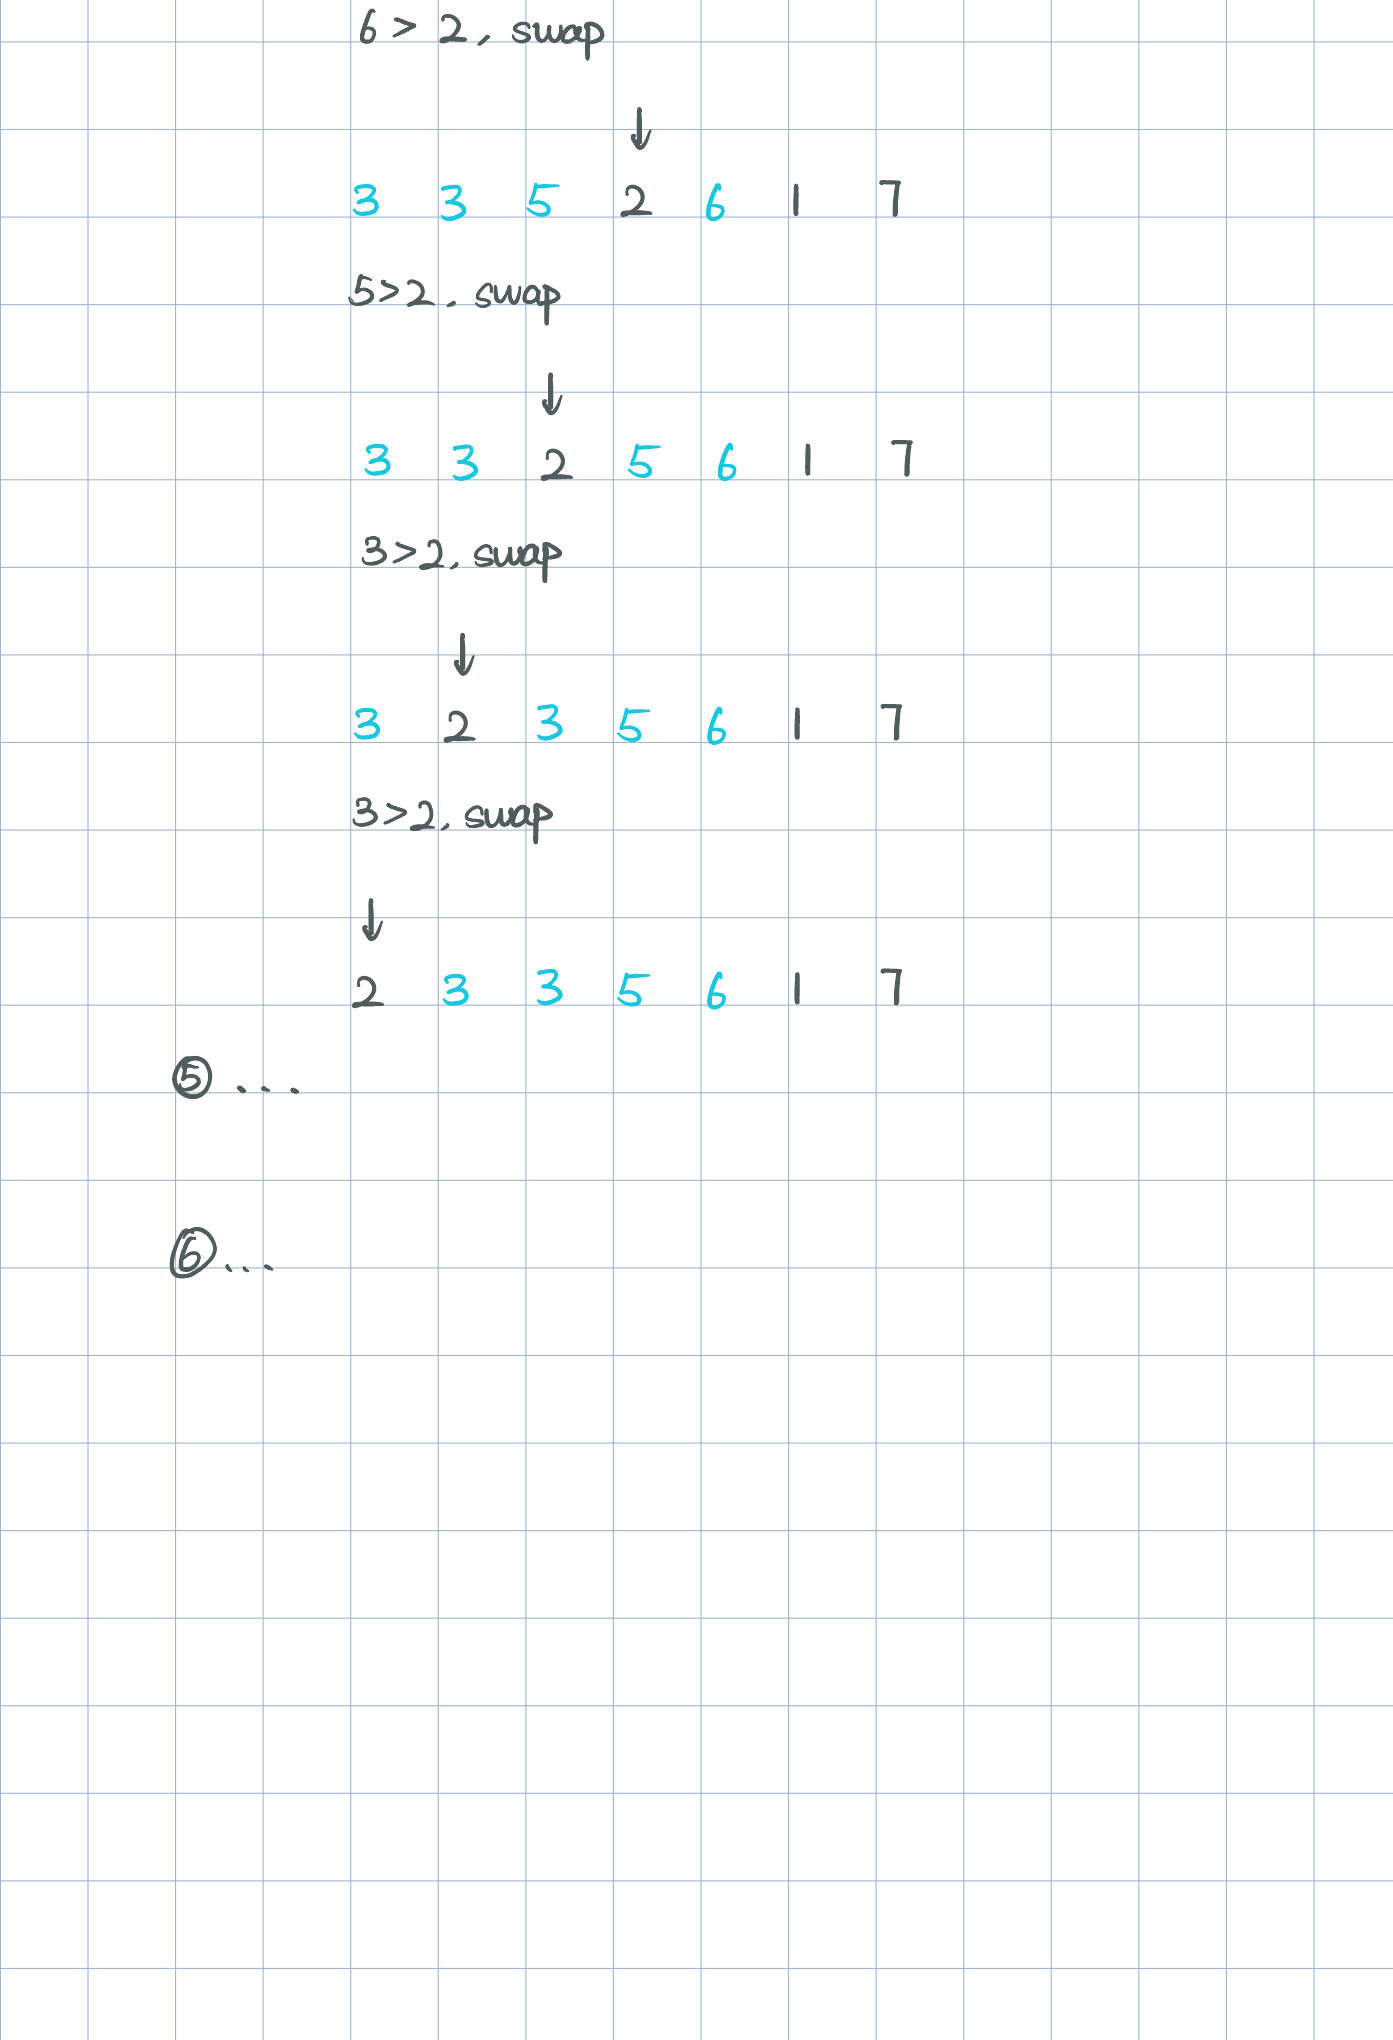 6 > 2, swap
↓
3 3 5 2 6 1 7
5>2. swap
↓
3 3 2 5 6 1 7
3>2. swap
↓
3 2 3 5 6 1 7
3>2. swap
↓
2 3 3 5 6 1 7
⑤ ...
⑥ ...